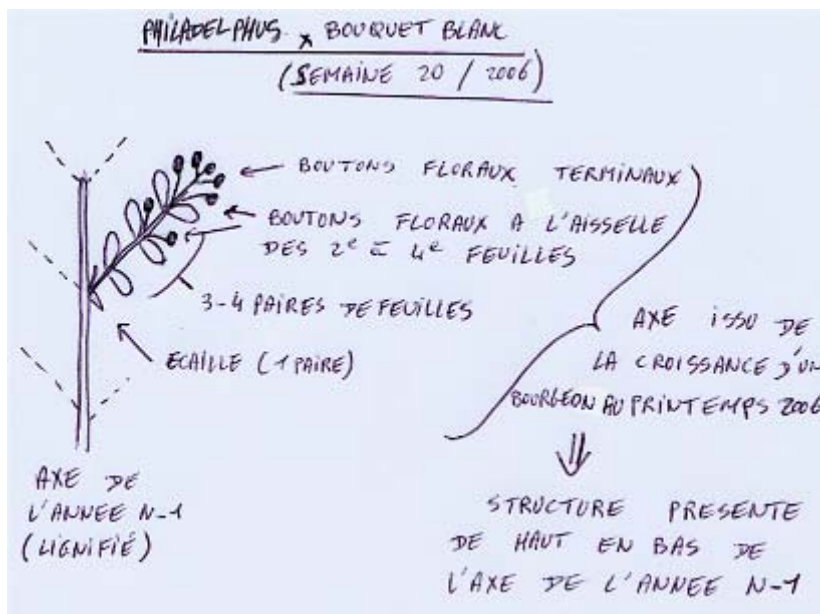 PHILADELPHUS x BOUQUET BLANC
(SEMAINE 20 / 2006)
BOUTONS FLORAUX TERMINAUX
BOUTONS FLORAUX A L'AISSELLE
DES 2e à 4e FEUILLES
3-4 PAIRES DE FEUILLES
ECAILLE (1 PAIRE)
AXE ISSU DE
LA CROISSANCE D'UN
BOURGEON AU PRINTEMPS 2006
AXE DE
L'ANNEE N-1
(LIGNIFIÉ)
STRUCTURE PRESENTE
DE HAUT EN BAS DE
L'AXE DE L'ANNEE N-1